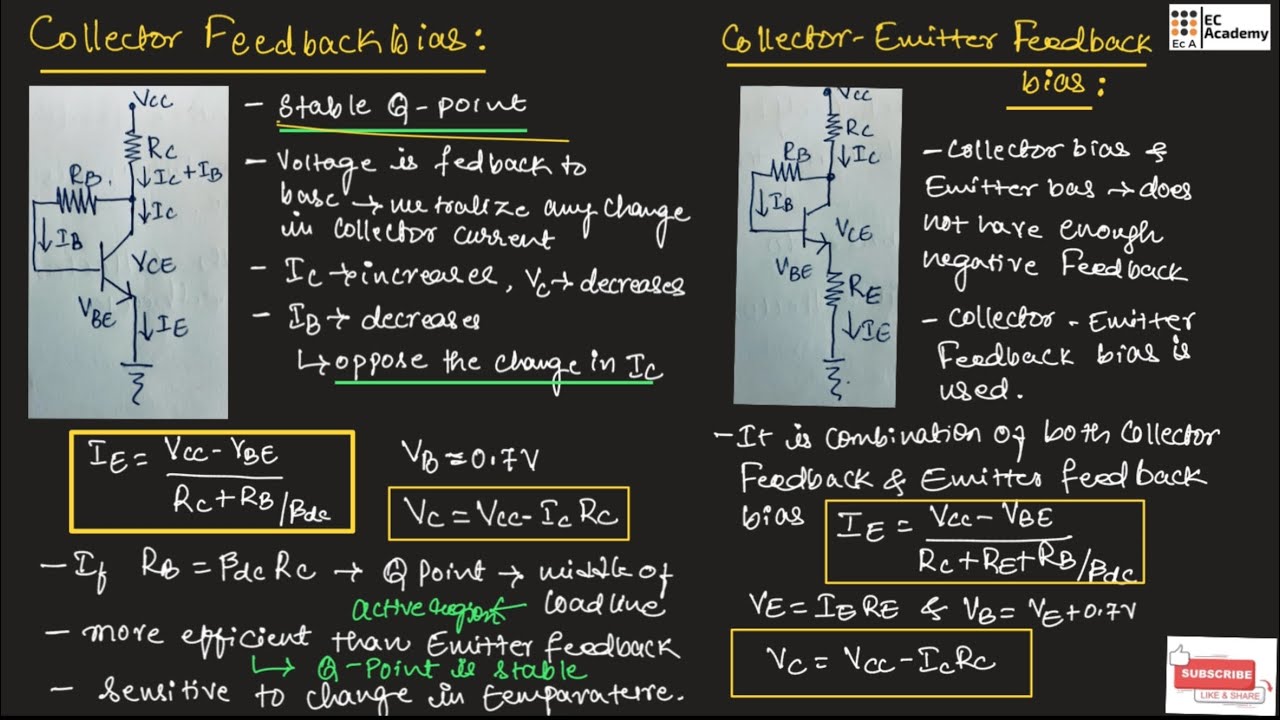 Collector Feedback bias:
VCC
RC
RB
↓ IC + IB
↓ IC
↓ IB
VCE
VBE
↓ IE
- Stable Q-point
- Voltage is fedback to
base → netralize any change
in collector current
- IC → increases, VC → decreases
- IB → decreases
↳ oppose the change in IC
IE = VCC - VBE / RC + RB/βdc
VB ≈ 0.7V
VC = VCC - IC RC
- If RB = βdc RC → Q point → middle of
loadline
active region ←
- more efficient than Emitter feedback
↳ Q-Point is stable
- sensitive to change in temparaterre.
Collector-Emitter Feedback
bias:
EC
Academy
EcA
VCC
RC
RB
↓ IC
↓ IB
VCE
VBE
RE
↓ IE
- Collector bias &
Emitter bas → does
not have enough
negative Feedback
- Collector - Emitter
Feedback bias is
used.
- It is combination of both collector
Feedback & Emitter feedback
bias
IE = VCC - VBE / RC + RE + RB/βdc
VE = IE RE & VB = VE + 0.7V
VC = VCC - IC RC
SUBSCRIBE
LIKE & SHARE